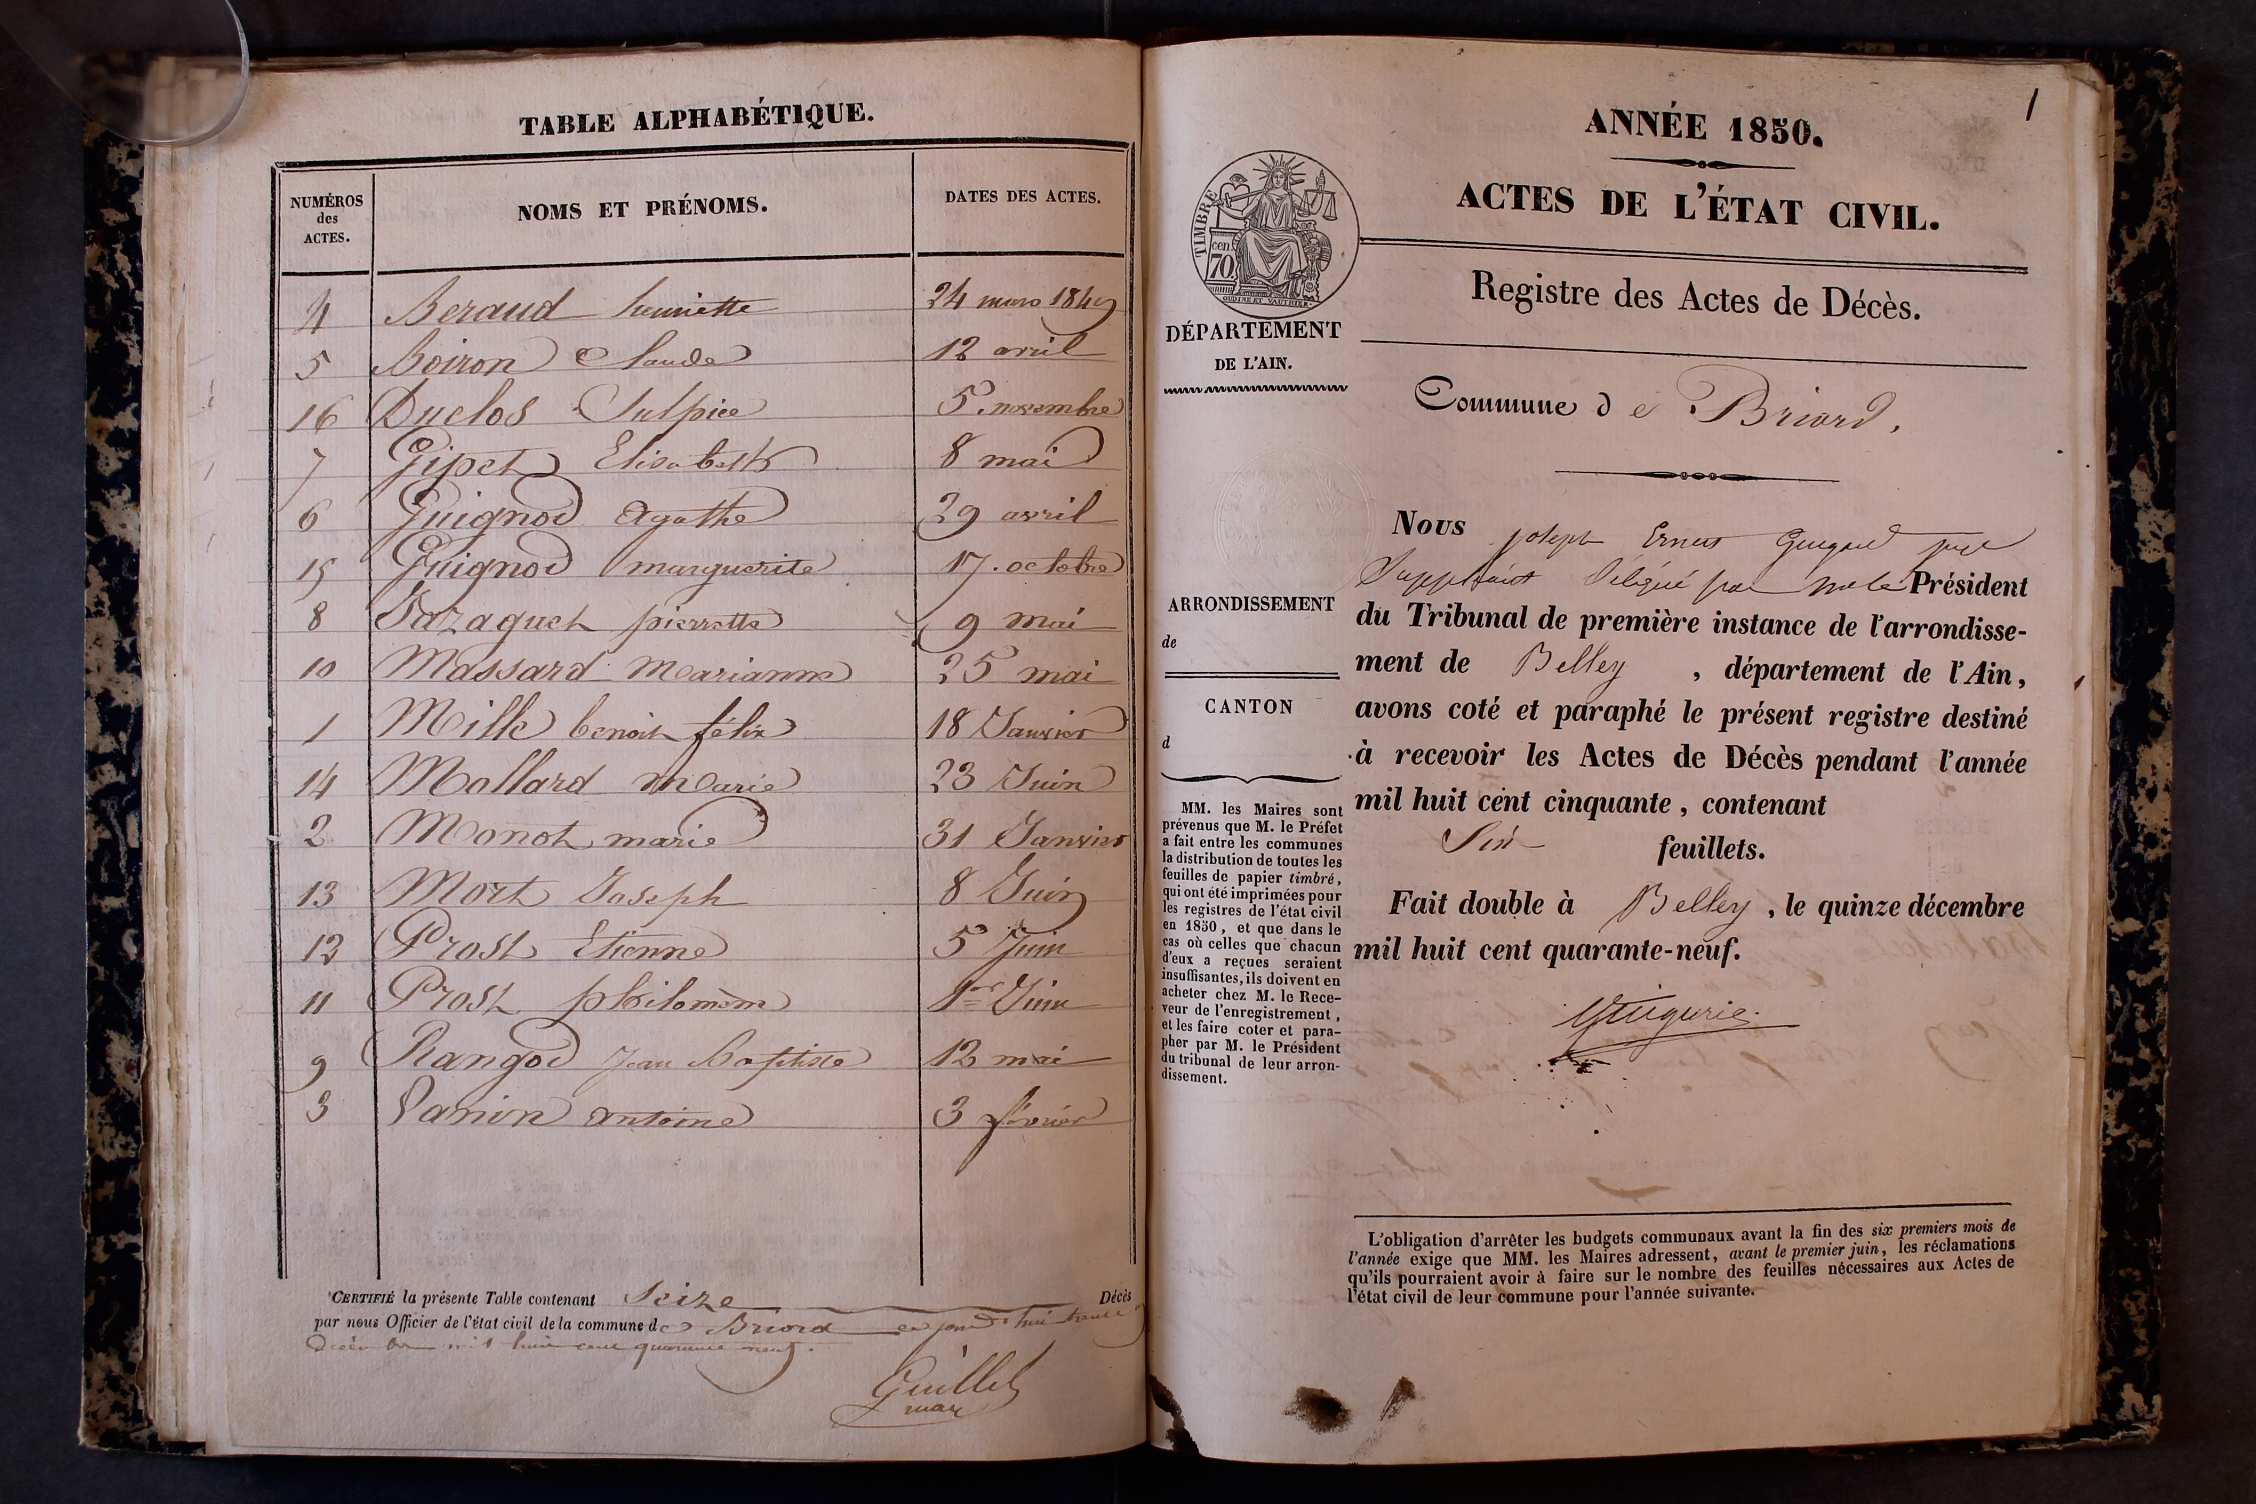 TABLE ALPHABÉTIQUE.
NUMÉROS des ACTES. NOMS ET PRÉNOMS. DATES DES ACTES.
4 Beraud henriette 24 mars 1849
5 Boiron Claude 12 avril
16 Duclos Sulpice 5 novembre
7 Gipet Elisabeth 8 mai
6 Guignod agathe 29 avril
15 Guignod marguerite 17 octobre
8 pierrette 9 mai
10 Massard Marianne 25 mai
1 Mille benoit félix 18 Janvier
14 Mollard Marie 23 Juin
2 Monot marie 31 Janvier
13 Mort Joseph 8 Juin
12 Prost Etienne 5 Juin
11 Prost philomène 1er Juin
9 Rangod Jean baptiste 12 mai
3 antoine 3 février
CERTIFIÉ la présente Table contenant Seize Décès
par nous Officier de l'état civil de la commune de Briord ce jourd'hui trente
Décembre mil huit cent quarante neuf.
Guillet
maire
1
ANNÉE 1850.
ACTES DE L'ÉTAT CIVIL.
TIMBRE
70 cen
OUDINE ET VAUTHIER
Registre des Actes de Décès.
DÉPARTEMENT
DE L'AIN.
Commune de Briord.
Nous joseph Ernest juge
Suppléant délégué par Mr le Président
ARRONDISSEMENT
de
du Tribunal de première instance de l'arrondisse-
ment de Belley, département de l'Ain,
CANTON
d
avons coté et paraphé le présent registre destiné
à recevoir les Actes de Décès pendant l'année
mil huit cent cinquante, contenant
Six feuillets.
Fait double à Belley, le quinze décembre
mil huit cent quarante-neuf.
MM. les Maires sont
prévenus que M. le Préfet
a fait entre les communes
la distribution de toutes les
feuilles de papier timbré,
qui ont été imprimées pour
les registres de l'état civil
en 1850, et que dans le
cas où celles que chacun
d'eux a reçues seraient
insuffisantes, ils doivent en
acheter chez M. le Rece-
veur de l'enregistrement,
et les faire coter et para-
pher par M. le Président
du tribunal de leur arron-
dissement.
L'obligation d'arrêter les budgets communaux avant la fin des six premiers mois de
l'année exige que MM. les Maires adressent, avant le premier juin, les réclamations
qu'ils pourraient avoir à faire sur le nombre des feuilles nécessaires aux Actes de
l'état civil de leur commune pour l'année suivante.